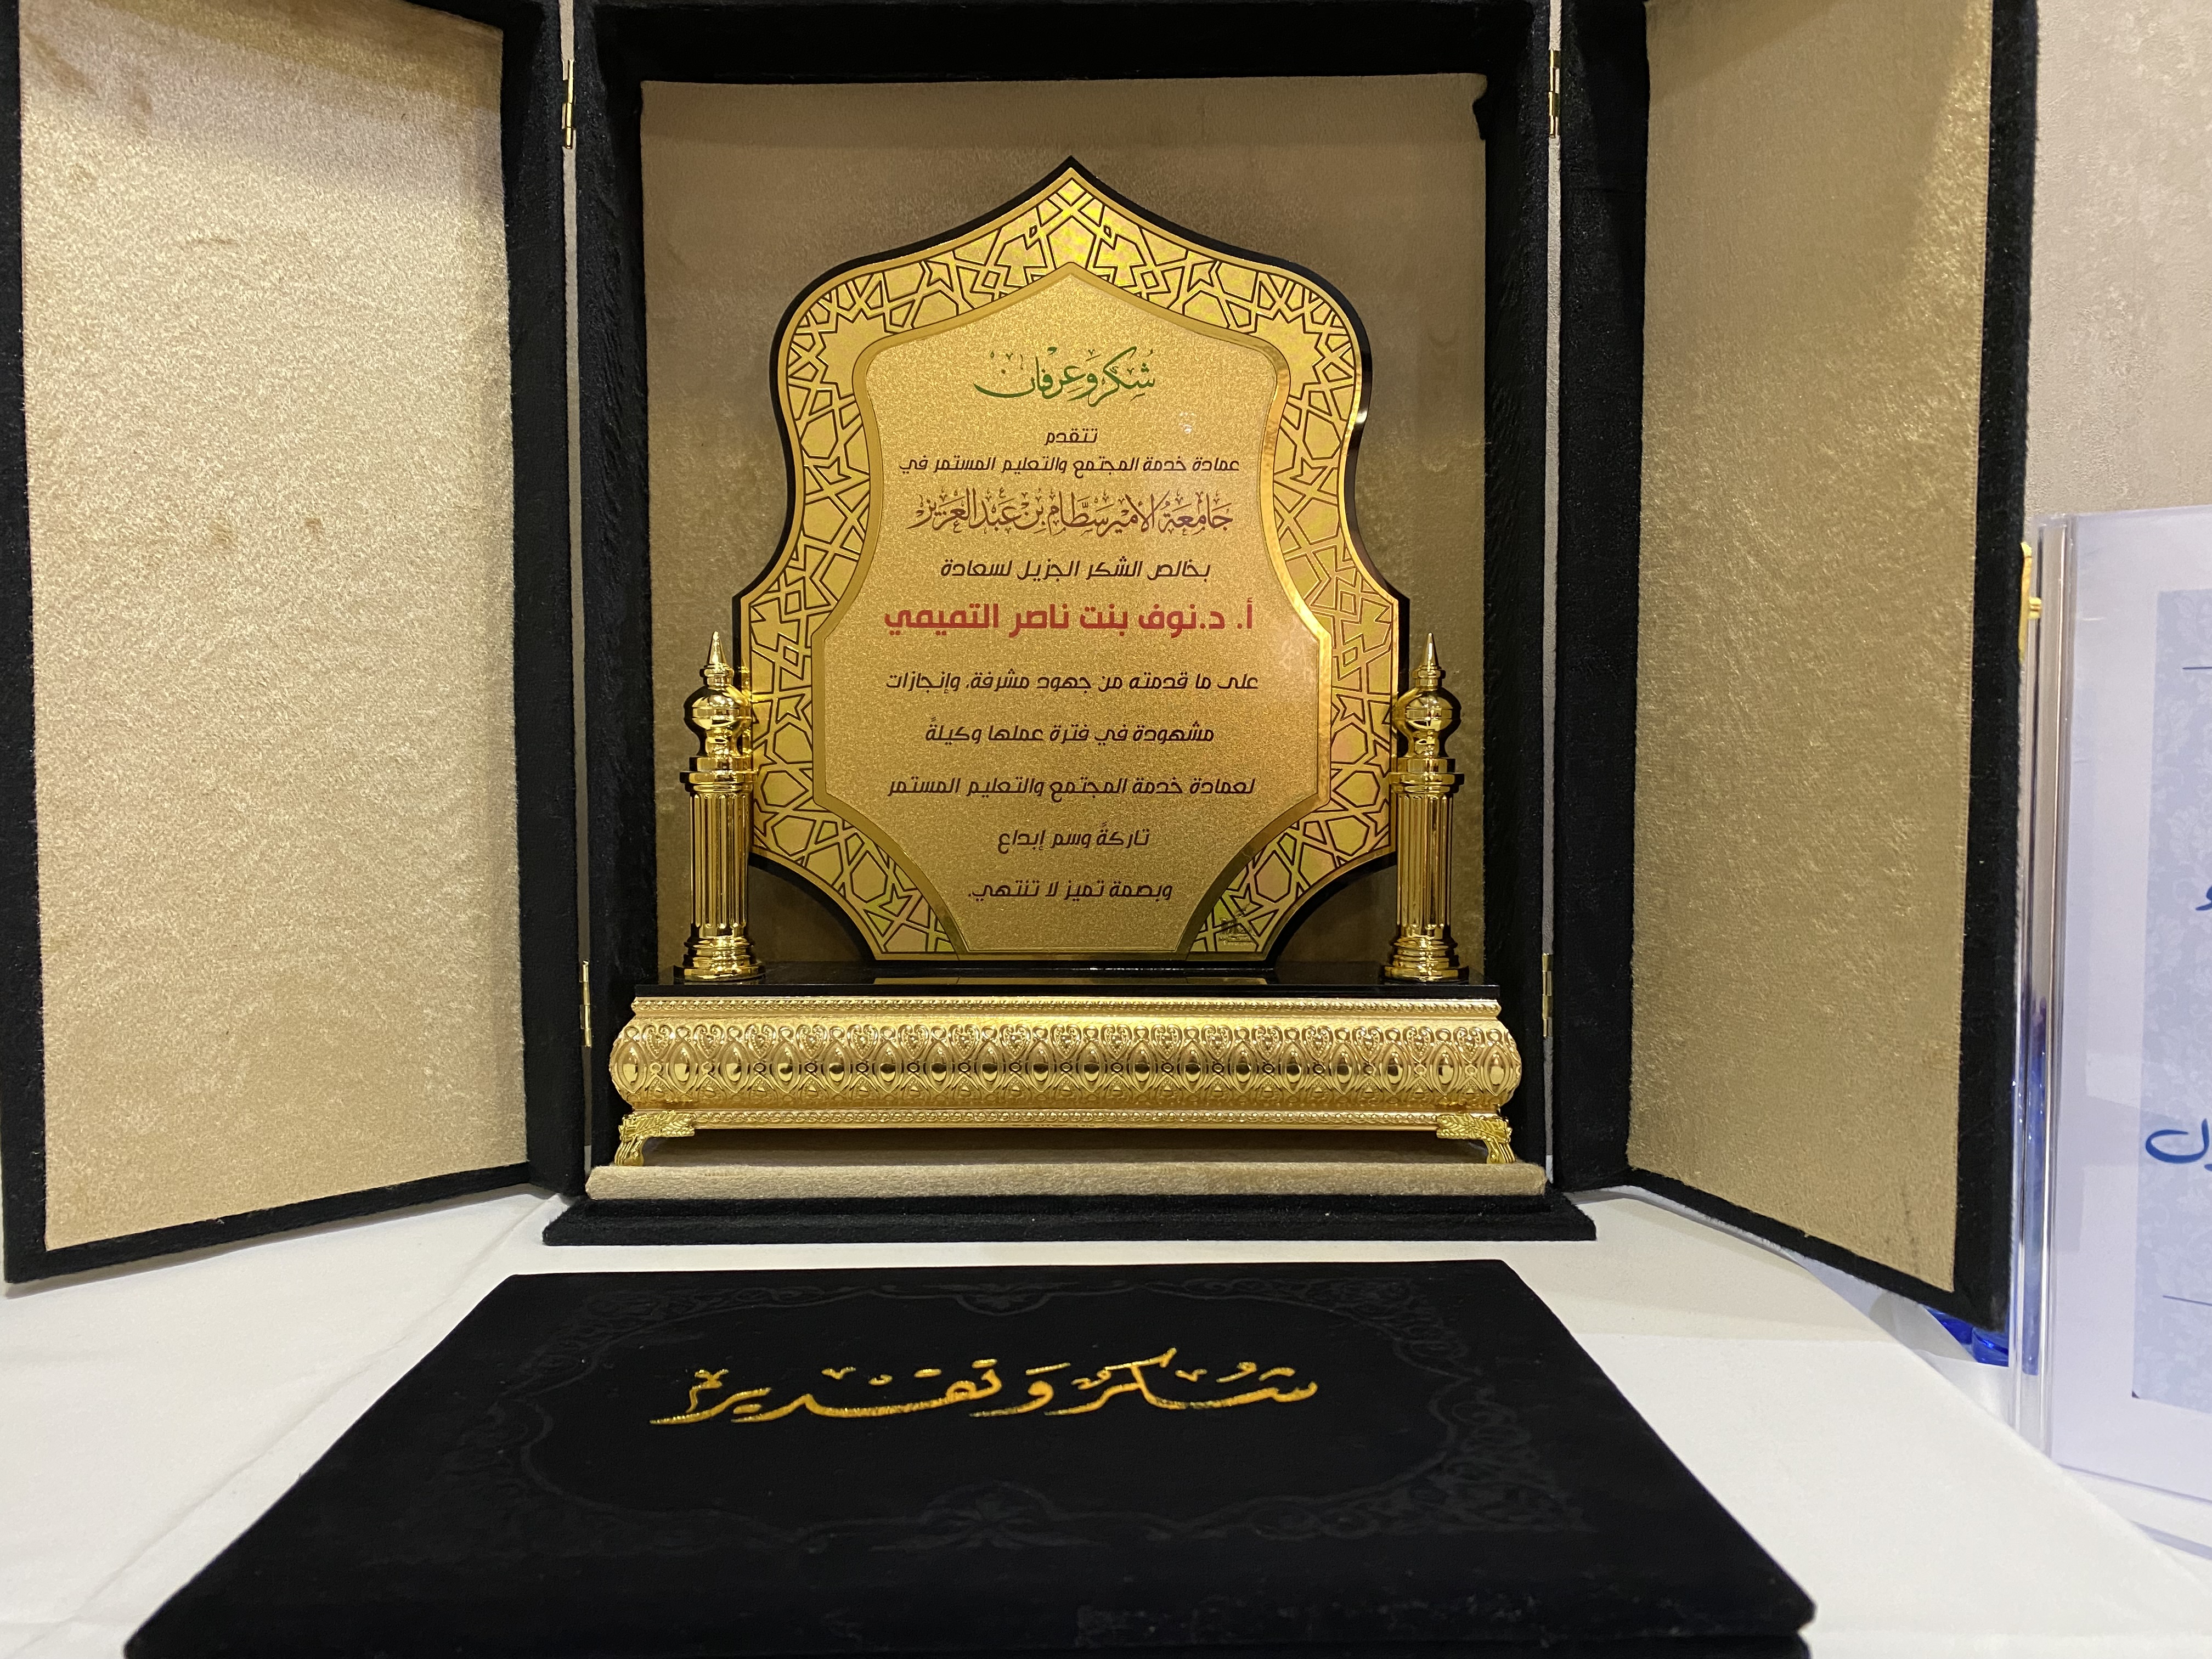 شكر وعرفان
تتقدم
عمادة خدمة المجتمع والتعليم المستمر في
جامعة الأمير سطام بن عبد العزيز
بخالص الشكر الجزيل لسعادة
أ. د.نوف بنت ناصر التميمي
على ما قدمته من جهود مشرفة، وإنجازات
مشهودة في فترة عملها وكيلةً
لعمادة خدمة المجتمع والتعليم المستمر
تاركةً وسم إبداع
وبصمة تميز لا تنتهي.
شكر وتقدير